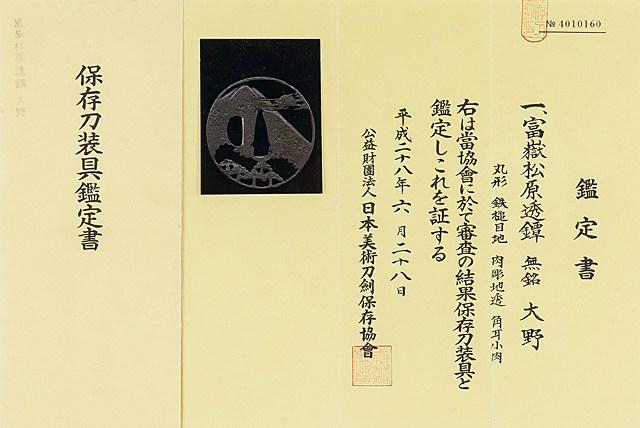 № 4010160
鑑定書
一、富嶽松原透鐔 無銘 大野
丸形 鉄槌目地 肉彫地透 角耳小肉
右は當協會に於て審査の結果保存刀装具と
鑑定しこれを証する
平成二十八年六月二十八日
公益財團法人日本美術刀劍保存協會
保存刀装具鑑定書